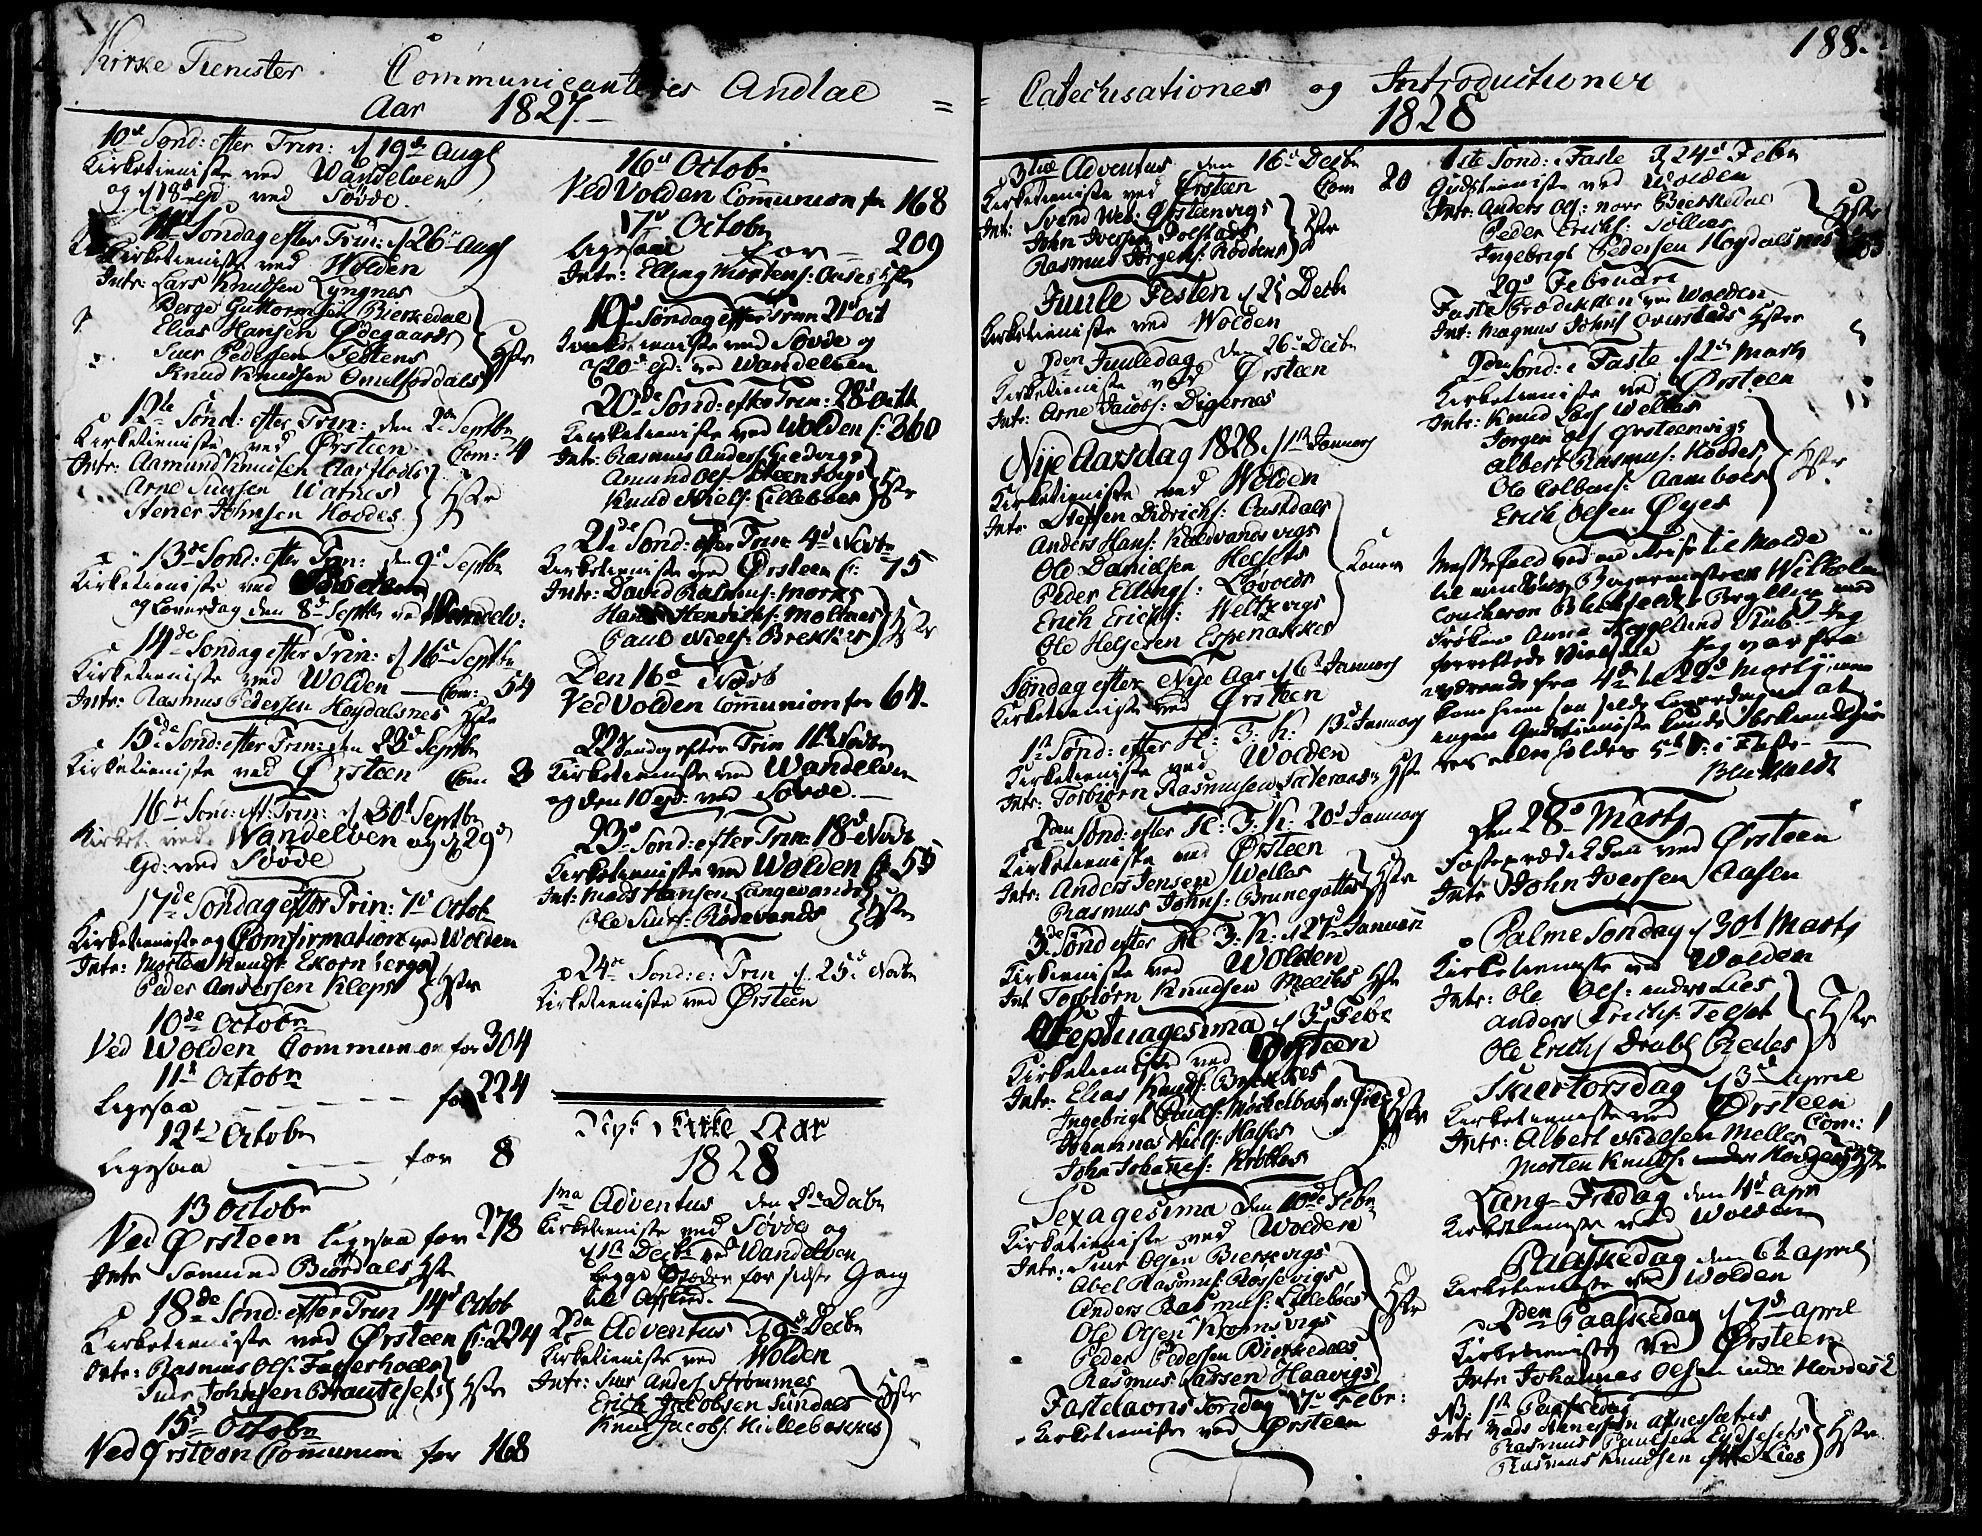 Kirke Tienester. Communicanteres Andtal =
Aar 1827.
10de Sond: efter Trin: d 19de Aug
Kirketieniste ved Wandelven
og d 18de ejd ved Søvde.
11te Søndag efter Trin: d 26de Aug
Kirketieniste ved Wolden
Intr: Lars Knudsen Lyngnes
Berge Guttormsen Bierkedal
Elias Hansen Ødegaards
Siur Pedersen Testens
Knud Knudsen Hstr
12te Sond: efter Trin: den 2den Septbr
Kirketieniste ved Ørsteen Com: 4
Intr: Aamund Knudsen Aarflods
Arne Siursen Watnes Hstr
Stener Johnsen Hovdes
13de Sond: efter Trin: den 9de Septbr
Kirketieniste ved
og Løverdag den 8de Septbr ved Wandelv:
14de Søndag efter Trin: d 16de Septbr
Kirketieniste ved Wolden Com: 54
Intr: Rasmus Pedersen Høydalsnes Hstr
15de Sond: efter Trin: den 23de Septbr
Kirketieniste ved Ørsteen Com: 3
16de Sond: eft: Trin: d 30te Septbr
Kirket: ved Wandelven og d 29de
ejd: ved Søvde
17de Søndag efter Trin: 7de Octob
Kirketieniste og Comfirmation ved Wolden
Intr: Morten Knuds: Ekornbergs
Peder Andersen Kleps Hstr
10de Octobr
Ved Wolden Communion for 304
11te Octobr
Ligesaa for 224
12te Octobr
Ligesaa for 8
13 Octobr
Ved Ørsteen ligesaa for 278
Intr Samund Biørdals Hstr
18de Sond: efter Trin 14de Octob
Kirketieniste ved Ørsteen C: 224
Intr: Rasmus Ols: Fagerhoem
Siur Johnsen Brautesets Hstr
15de Octobr
Ved Ørsteen Communion for 168
16de Octob
Ved Volden Communion for 168
17de Octobr
Ligesaa for 209
Intr: Elling Mortens: Hstr
19de Søndag efter Trin 21de Oct
Kirketieniste ved Søvde og
d 20de ejd: ved Wandelven
20de Sond: efter Trin: 28de Octb
Kirketieniste ved Wolden C: 360
Intr: Rasmus Anders:
Amund Ols: Steensvigs Hstr
Knud Niels: Lilleboes
21de Sond: efter Trin 4de Novbr
Kirketieniste ved Ørsteen C: 75
Intr: David Rasmus: Morks
Hans Henrichs: Molnes Hstr
Paul Niels: Brekkes
Den 16de Novb
Ved Volden Communion for 64.
22 Søndag efter Trin 11te Novbr
Kirketieniste ved Wandelven
og den 10 ejd: ved Søvde.
23de Sond: efter Trin: 18de Novbr
Kirketieniste ved Wolden C: 55
Int: Mads Hansen Langevands
Ole Siurs: Rødevands Hstr
24de Sond: e: Trin d: 25de Novbr
Kirketieniste ved Ørsteen
Nyt Kirke Aar
1828
1ma Adventus den 2den Decbr
Kirketieniste ved Søvde og
d 1te Decbr ved Wandelven
begge Stæder for sidste Gang
til Afsked.
2da Adventus d 9de Decbr
Kirketieniste ved Wolden
Intr: Siur Anders Strømmes
Erich Jacobsen Sundals Hstr
Knut Jacobs: Hillebakkes
188.
= Catechisationes og Introductioner
1828
3tia Adventus den 16de Decbr
Kirketieniste ved Ørsteen Com 20
Int: Svend Ørsteenvigs
John Iversen Rolstads Hstr
Rasmus Jørgens: Roddens
Juule Festen d 25 Decbr
Kirketieniste ved Wolden
2den Juuledag den 26de Decbr
Kirketieniste ved Ørsteen
Intr: Arne Jacobs: Digernes
Nije Aarsdag 1828 d 1te Januarj
Kirketieniste ved Wolden
Intr Steffen Didrichs:
Anders Hans: Koldvandsvigs
Ole Danielsen Helsets
Peder Ellings: Løvoeds
Erich Erichs: Weltzvigs
Ole Helgesen Espenakkes
Søndag efter Nije Aar d 6te Januarj
Kirketieniste ved Ørsteen
1te Sond: efter H: 3: K: 13de Januarj
Kirketieniste ved Wolden
Intr: Torbiørn Rasmusen Hstr
2den Sond: efter H: 3: K: 20de Januarj
Kirketieniste ved Ørsteen
Intr: Anders Jensen Welles
Rasmus Johns: Brunegottes Hstr
3de Sond efter H 3: K: d 27de Januarii
Kirketieniste ved Wolden
Int Torbiørn Knudsen Meeles Hstr
Septuagesima d 3de Febr
Kirketieniste ved Ørsteen
Intr: Elias Knuds: Brekkes
Ingebrigt Knuds: Møckelbost
Hannnas Niels: Halses Hstr
John Johannes: Krokkes
Sexagesima den 10de Febr
Kirketieniste ved Wolden
Intr: Siur Olsen Bierkevigs
Abel Rasmus: Rossevigs
Anders Rasmus: Lilleboes
Ole Olsen Kromsvigs Hstr
Peder Pedersen Bierkedals
Rasmus Larsen Haavigs
Fastelavns Søndag 17de Febr:
Kirketieniste ved Ørsteen
1ste Sond: i Faste d 24de Febr
Gudstieniste ved Wolden
Intr: Anders Ols: nore Bierkedal
Peder Erichs: Sollies Hstr
Ingebrigt Pedersen Høydalsnes
29de Februari
Faste Prædiken ved Wolden
Int: Magnus Johns Qvistads Hstr
2den Sond: i Faste d 2den Marts
Kirketieniste ved Ørsteen
Intr: Knud Lars Welles
Jørgen Ols Ørsteenvigs
Albert Rasmus: Hovdes Hstr
Ole Colbens: Aamboes
Erich Olsen Øyes
ved en Reise til Molde
til min Borgermesteren Wilhelm
Frøken Anna
forrettede Jeg var fra
værende fra 4de til 29de Martij, men
kom hiem saa Løverdagen at
ingen Gudstieniste kunde
eller holdes 5te S: i Faste.
den 28de Marts
Fasteprædiken ved Ørsteen
Intr John Iversen Aasen
Palme Søndag d 30te Marts
Kirketieniste ved Wolden
Intr: Ole Ols: Lies
Anders Erichs: Telset Hstr
Ole Erichs
Skiertorsdag d 3de April
Kirketieniste ved Ørsteen
Com: 1
Intr: Albert Nielsen Melles
Morten Knuds: Hstr
Lang-Fredag den 4de Apr
Kirketieniste ved Wolden
Paaskedag den 6te April
Kirketieniste ved Wolden
2den Paaskedag d 7de April
Kirketieniste ved Ørsteen
Intr Johannes Olsen Hovdes
NB: 1te Paaskedag
Intr
Rasmus Paulsen Hstr
Rasmus Knudsen Lies